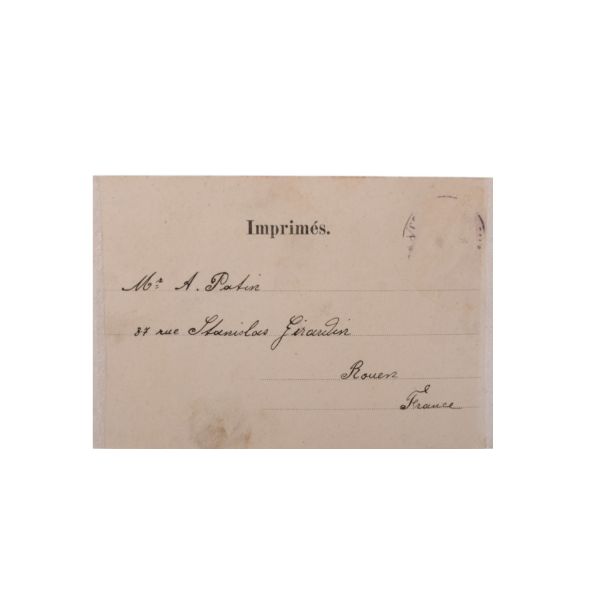 Imprimés.
Mr. A. Patin
37 rue Stanislas Girardin
Rouen
France